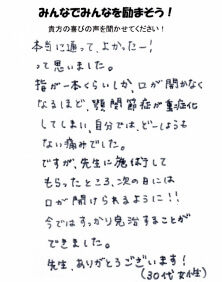 みんなでみんなを励まそう!
貴方の喜びの声を聞かせてください!
本当に通って、よかったー!
って思いました。
指が一本くらいしか、口が開かなく
なるほど、顎関節症が重症化
してしまい、自分では、どーしようも
ない痛みでした。
ですが、先生に施術して
もらったところ、次の日には
口が開けられるように!!
今ではすっかり完治することが
できました。
先生、ありがとうございます!
(30代女性)